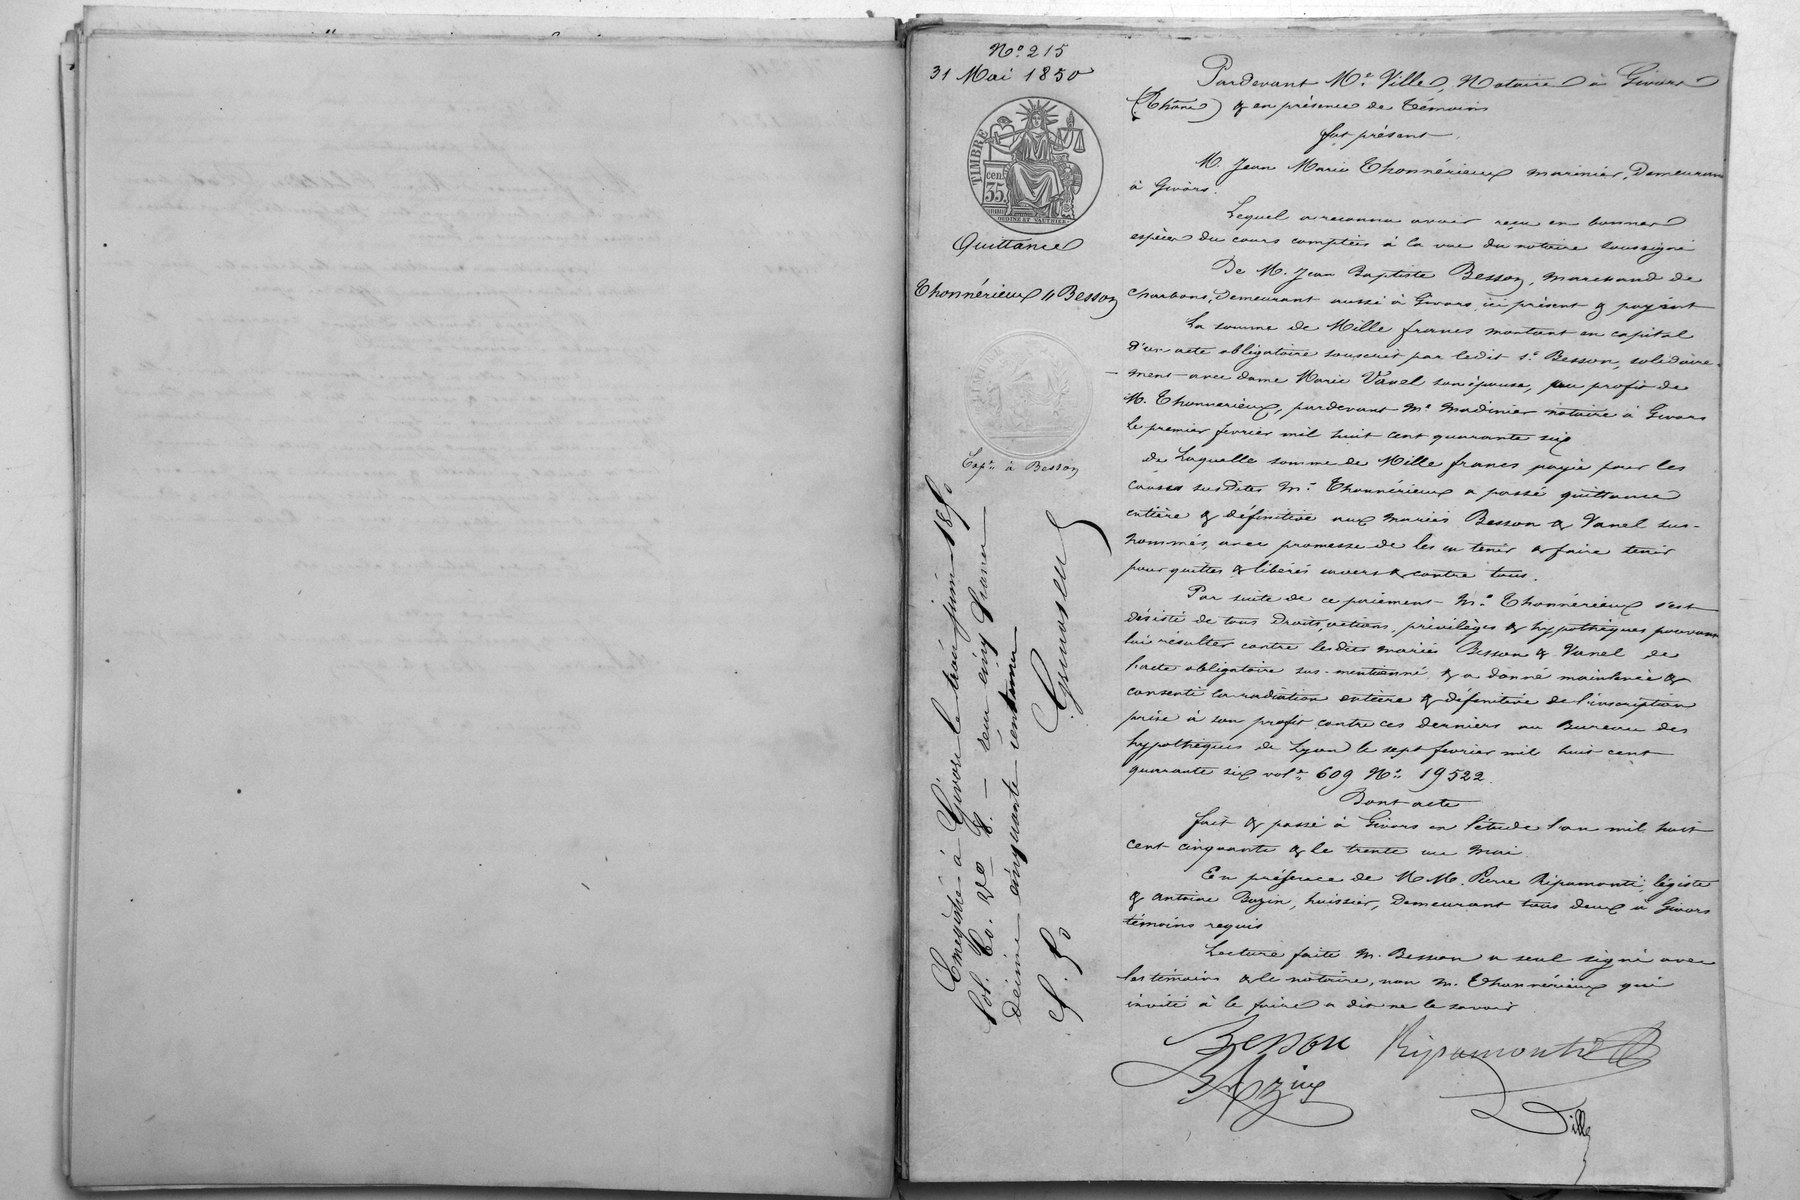 N° 215
31 Mai 1850
TIMBRE
35 cen.
Quittance
Thonnérieux // Besson
Expon à Besson
Enregistré à Givors le trois juin 1850
fol. 60. V° C. 8. — reçu cinq francs
décime cinquante centimes
5. 50
Pardevant Me. Ville, Notaire à Givors
(Rhône) & en présence de témoins
fut présent
M. Jean Marie Thonnérieux marinier, demeurant
à Givors.
Lequel a reconnu avoir reçu en bonnes
espèces du cours comptées à la vue du notaire soussigné
De M. Jean Baptiste Besson, marchand de
charbons, demeurant aussi à Givors, ici présent & payant
La somme de Mille francs montant en capital
d'un acte obligatoire souscrit par ledit s.r Besson, solidaire-
ment avec dame Marie Vanel son épouse, au profit de
M. Thonnerieux, pardevant Me Madinier notaire à Givors
le premier fevrier mil huit cent quarante six
de Laquelle somme de Mille francs payée pour les
causes susdites Mr. Thonnérieux a passé quittance
entière & définitive aux mariés Besson & Vanel sus-
nommés, avec promesse de les en tenir & faire tenir
pour quittes & libérés envers & contre tous.
Par suite de ce paiement Mr. Thonnérieux s'est
désisté de tous droits, actions, privilèges & hypothèques pouvant
lui résulter contre lesdits mariés Besson & Vanel de
l'acte obligatoire sus-mentionné, & a donné mainlevée &
consenti la radiation entière & définitive de l'inscription
prise à son profit contre ces derniers au Bureau des
hypothèques de Lyon le sept fevrier mil huit cent
quarante six vol.e 609 N°. 19522.
Dont acte
fait & passé à Givors en l'étude l'an mil huit
cent cinquante & le trente un Mai
En présence de M.M. Pierre Ripamonti, légiste
& antoine Bazin, huissier, demeurant tous deux à Givors
témoins requis
Lecture faite M. Besson a seul signé avec
les témoins & le notaire, non M. Thonnérieux qui
invité à le faire a dit ne le savoir
Besson Ripamonti
Bazin
Ville